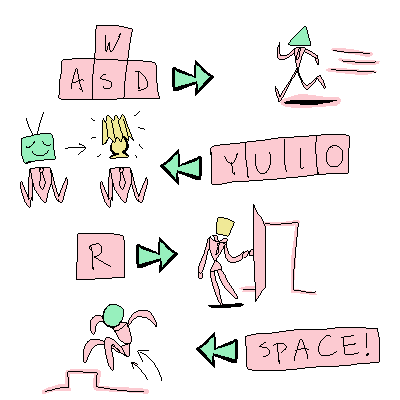 W
A S D
Y U I O
R
SPACE!